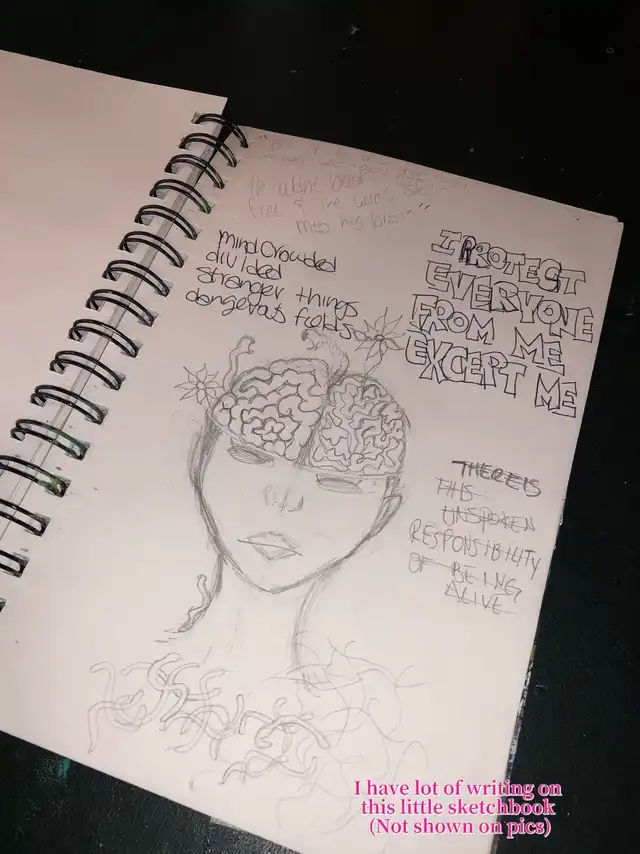 mind Crowded
divided
stranger things
dangerous fields
I PROTECT
EVERYONE
FROM ME
EXCEPT ME
THERE IS
THIS
UNSPOKEN
RESPONSIBILITY
OF BEING
ALIVE
I have lot of writing on
this little sketchbook
(Not shown on pics)